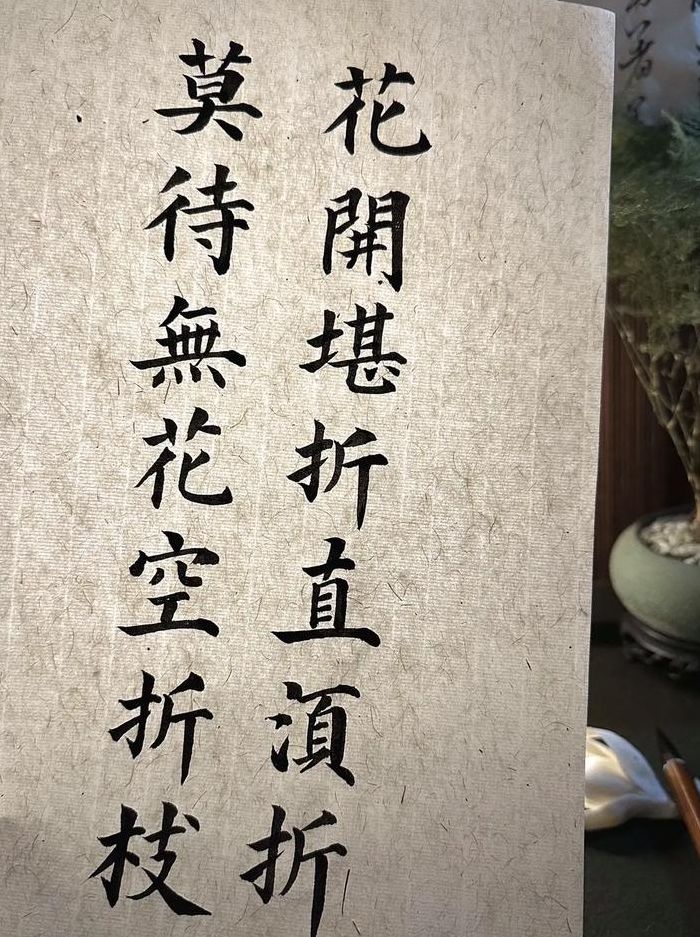 花開堪折直湏折
莫待無花空折枝